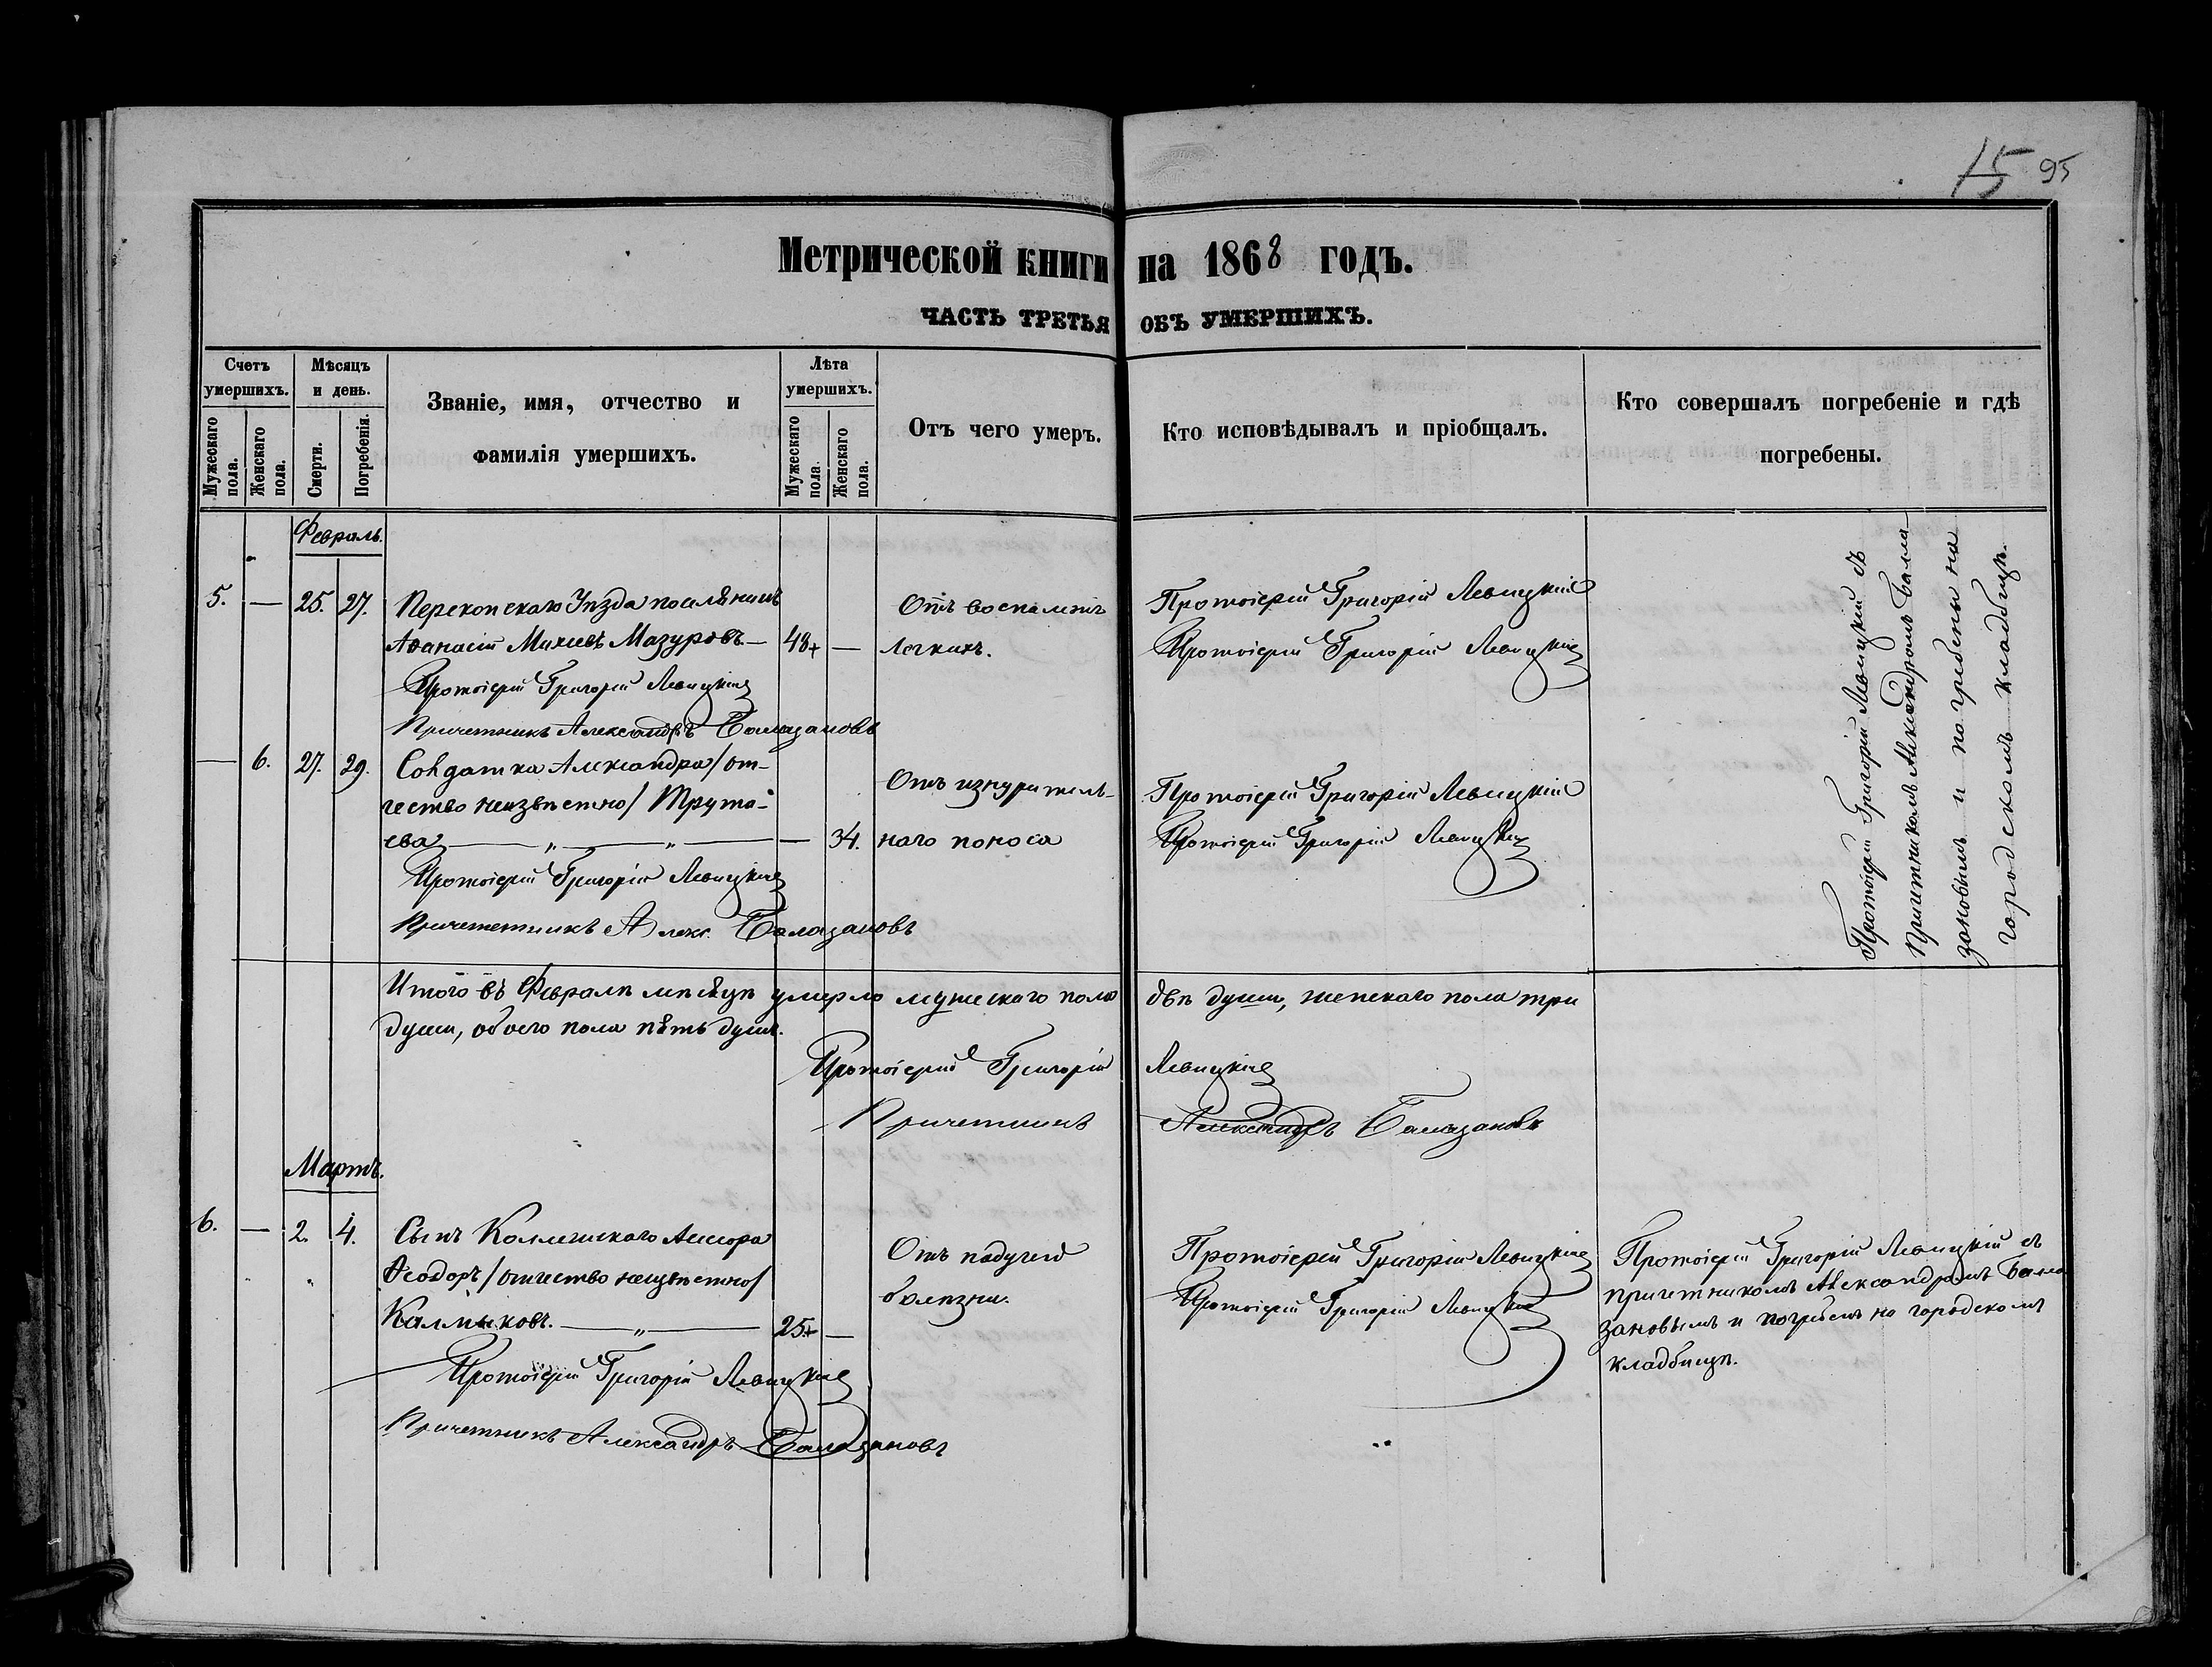 15 95
Метрической книги на 1868 годъ.
ЧАСТЬ ТРЕТЬЯ ОБЪ УМЕРШИХЪ.
Счетъ умершихъ.
Мужескаго пола.
Женскаго пола.
Мѣсяцъ и день.
Смерти.
Погребенія.
Званіе, имя, отчество и
фамилія умершихъ.
Лѣта умершихъ.
Мужескаго пола.
Женскаго пола.
Отъ чего умеръ.
Кто исповѣдывалъ и пріобщалъ.
Кто совершалъ погребеніе и гдѣ
погребены.
Февраль.
5. — 25. 27. Перекопскаго Уѣзда поселянинъ Отъ воспаленія Протоіерей Григорій Левицкій
Аѳанасій Михеевъ Мазуровъ — 48 — легкихъ. Протоіерей Григорій Левицкій
Протоіерей Григорій Левицкій
Причетникъ Александръ Балазановъ
— 6. 27. 29. Солдатка Александра /от-
чество неизвѣстно/ Трута- Отъ изнуритель- Протоіерей Григорій Левицкій
ева — „ — „ — — 34. наго поноса Протоіерей Григорій Левицкій
Протоіерей Григорій Левицкій
Причетникъ Алекс. Балазановъ
Протоіерей Григорій Левицкій съ
причетникомъ Александромъ Бала
зановымъ и погребены на
городскомъ кладбищѣ.
Итого въ Февралѣ мѣсяцѣ умерло мужескаго пола двѣ души, женскаго пола три
души, обоего пола пять душъ.
Протоіерей Григорій Левицкій
Причетникъ Александръ Балазановъ
Мартъ.
6. — 2. 4. Сынъ Коллежскаго Ассесора Отъ падучей Протоіерей Григорій Левицкій Протоіерей Григорій Левицкій съ
Ѳеодоръ /отчество неизвѣстно/ болѣзни. Протоіерей Григорій Левицкій причетникомъ Александромъ Бала
Калмыковъ. — „ — 25 — зановымъ и погребенъ на городскомъ
Протоіерей Григорій Левицкій кладбищѣ.
Причетникъ Александръ Балазановъ